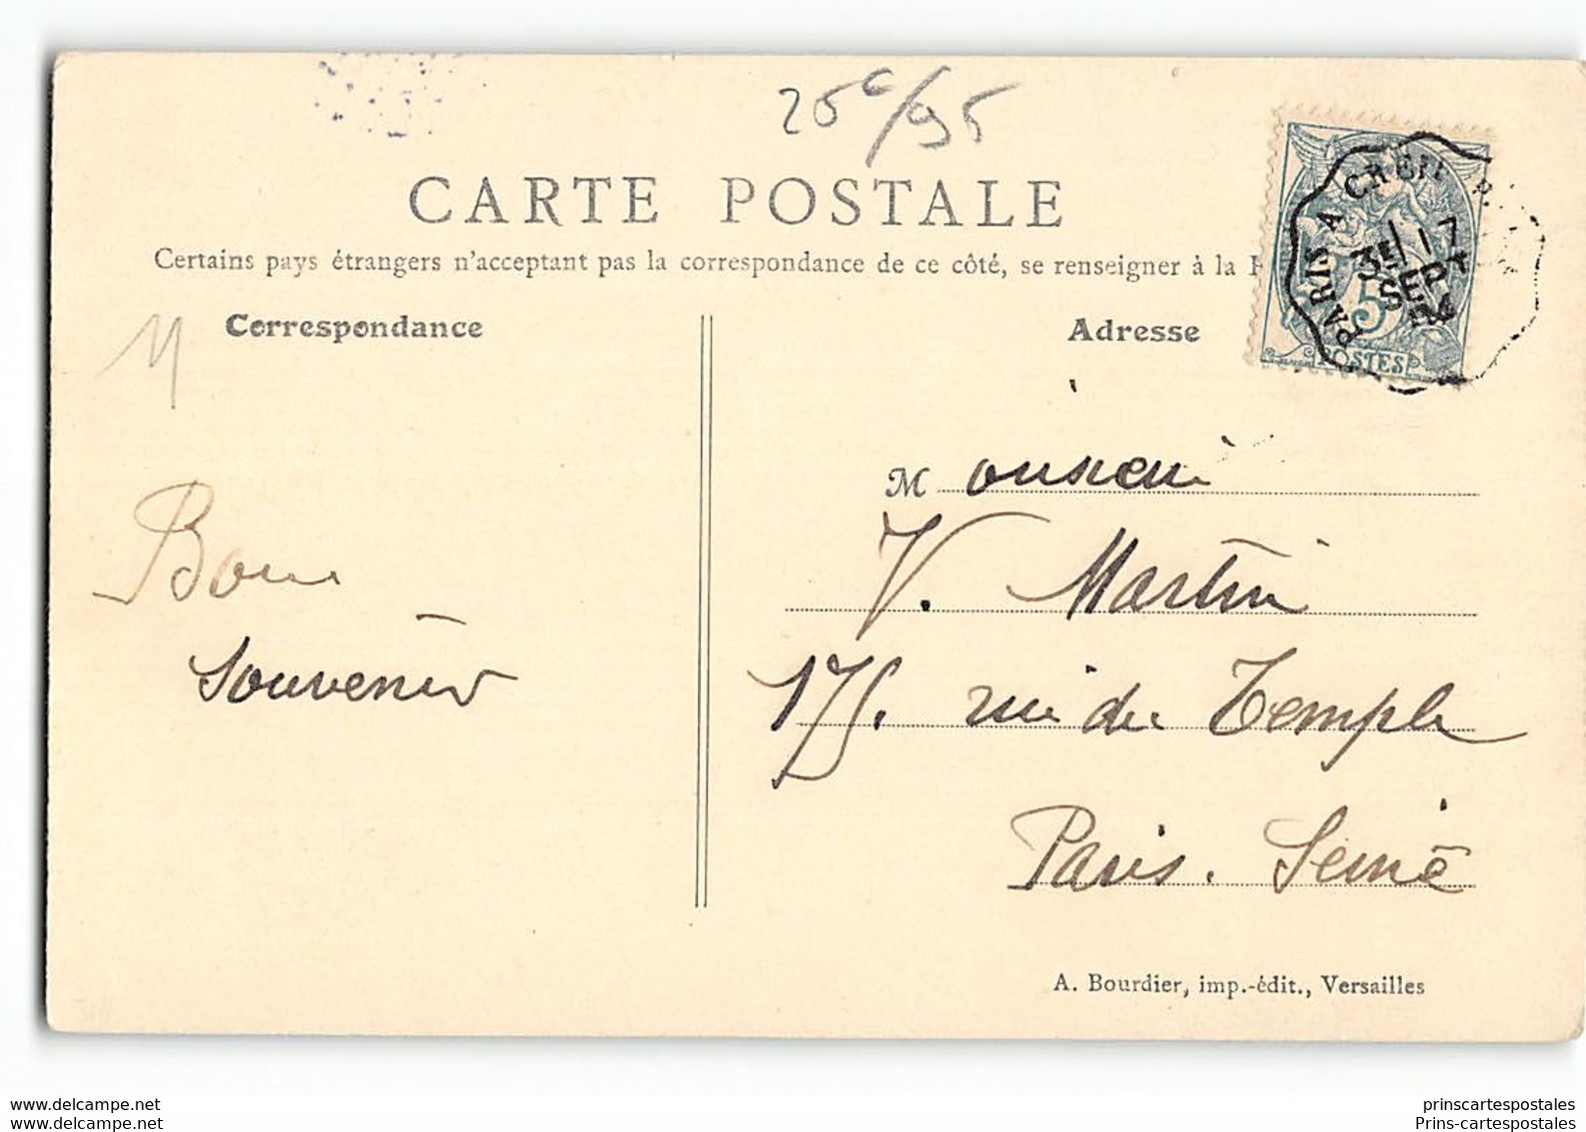 25c/95
CARTE POSTALE
Certains pays étrangers n'acceptant pas la correspondance de ce côté, se renseigner à la
Correspondance
Adresse
PARIS A CREIL
3E 17
SEPT
04
5
POSTES
Bon
souvenir
Monsieur
V. Martin
175. rue du Temple
Paris. Seine
A. Bourdier, imp.-édit., Versailles
www.delcampe.net
prinscartespostales
www.delcampe.net
Prins-cartespostales